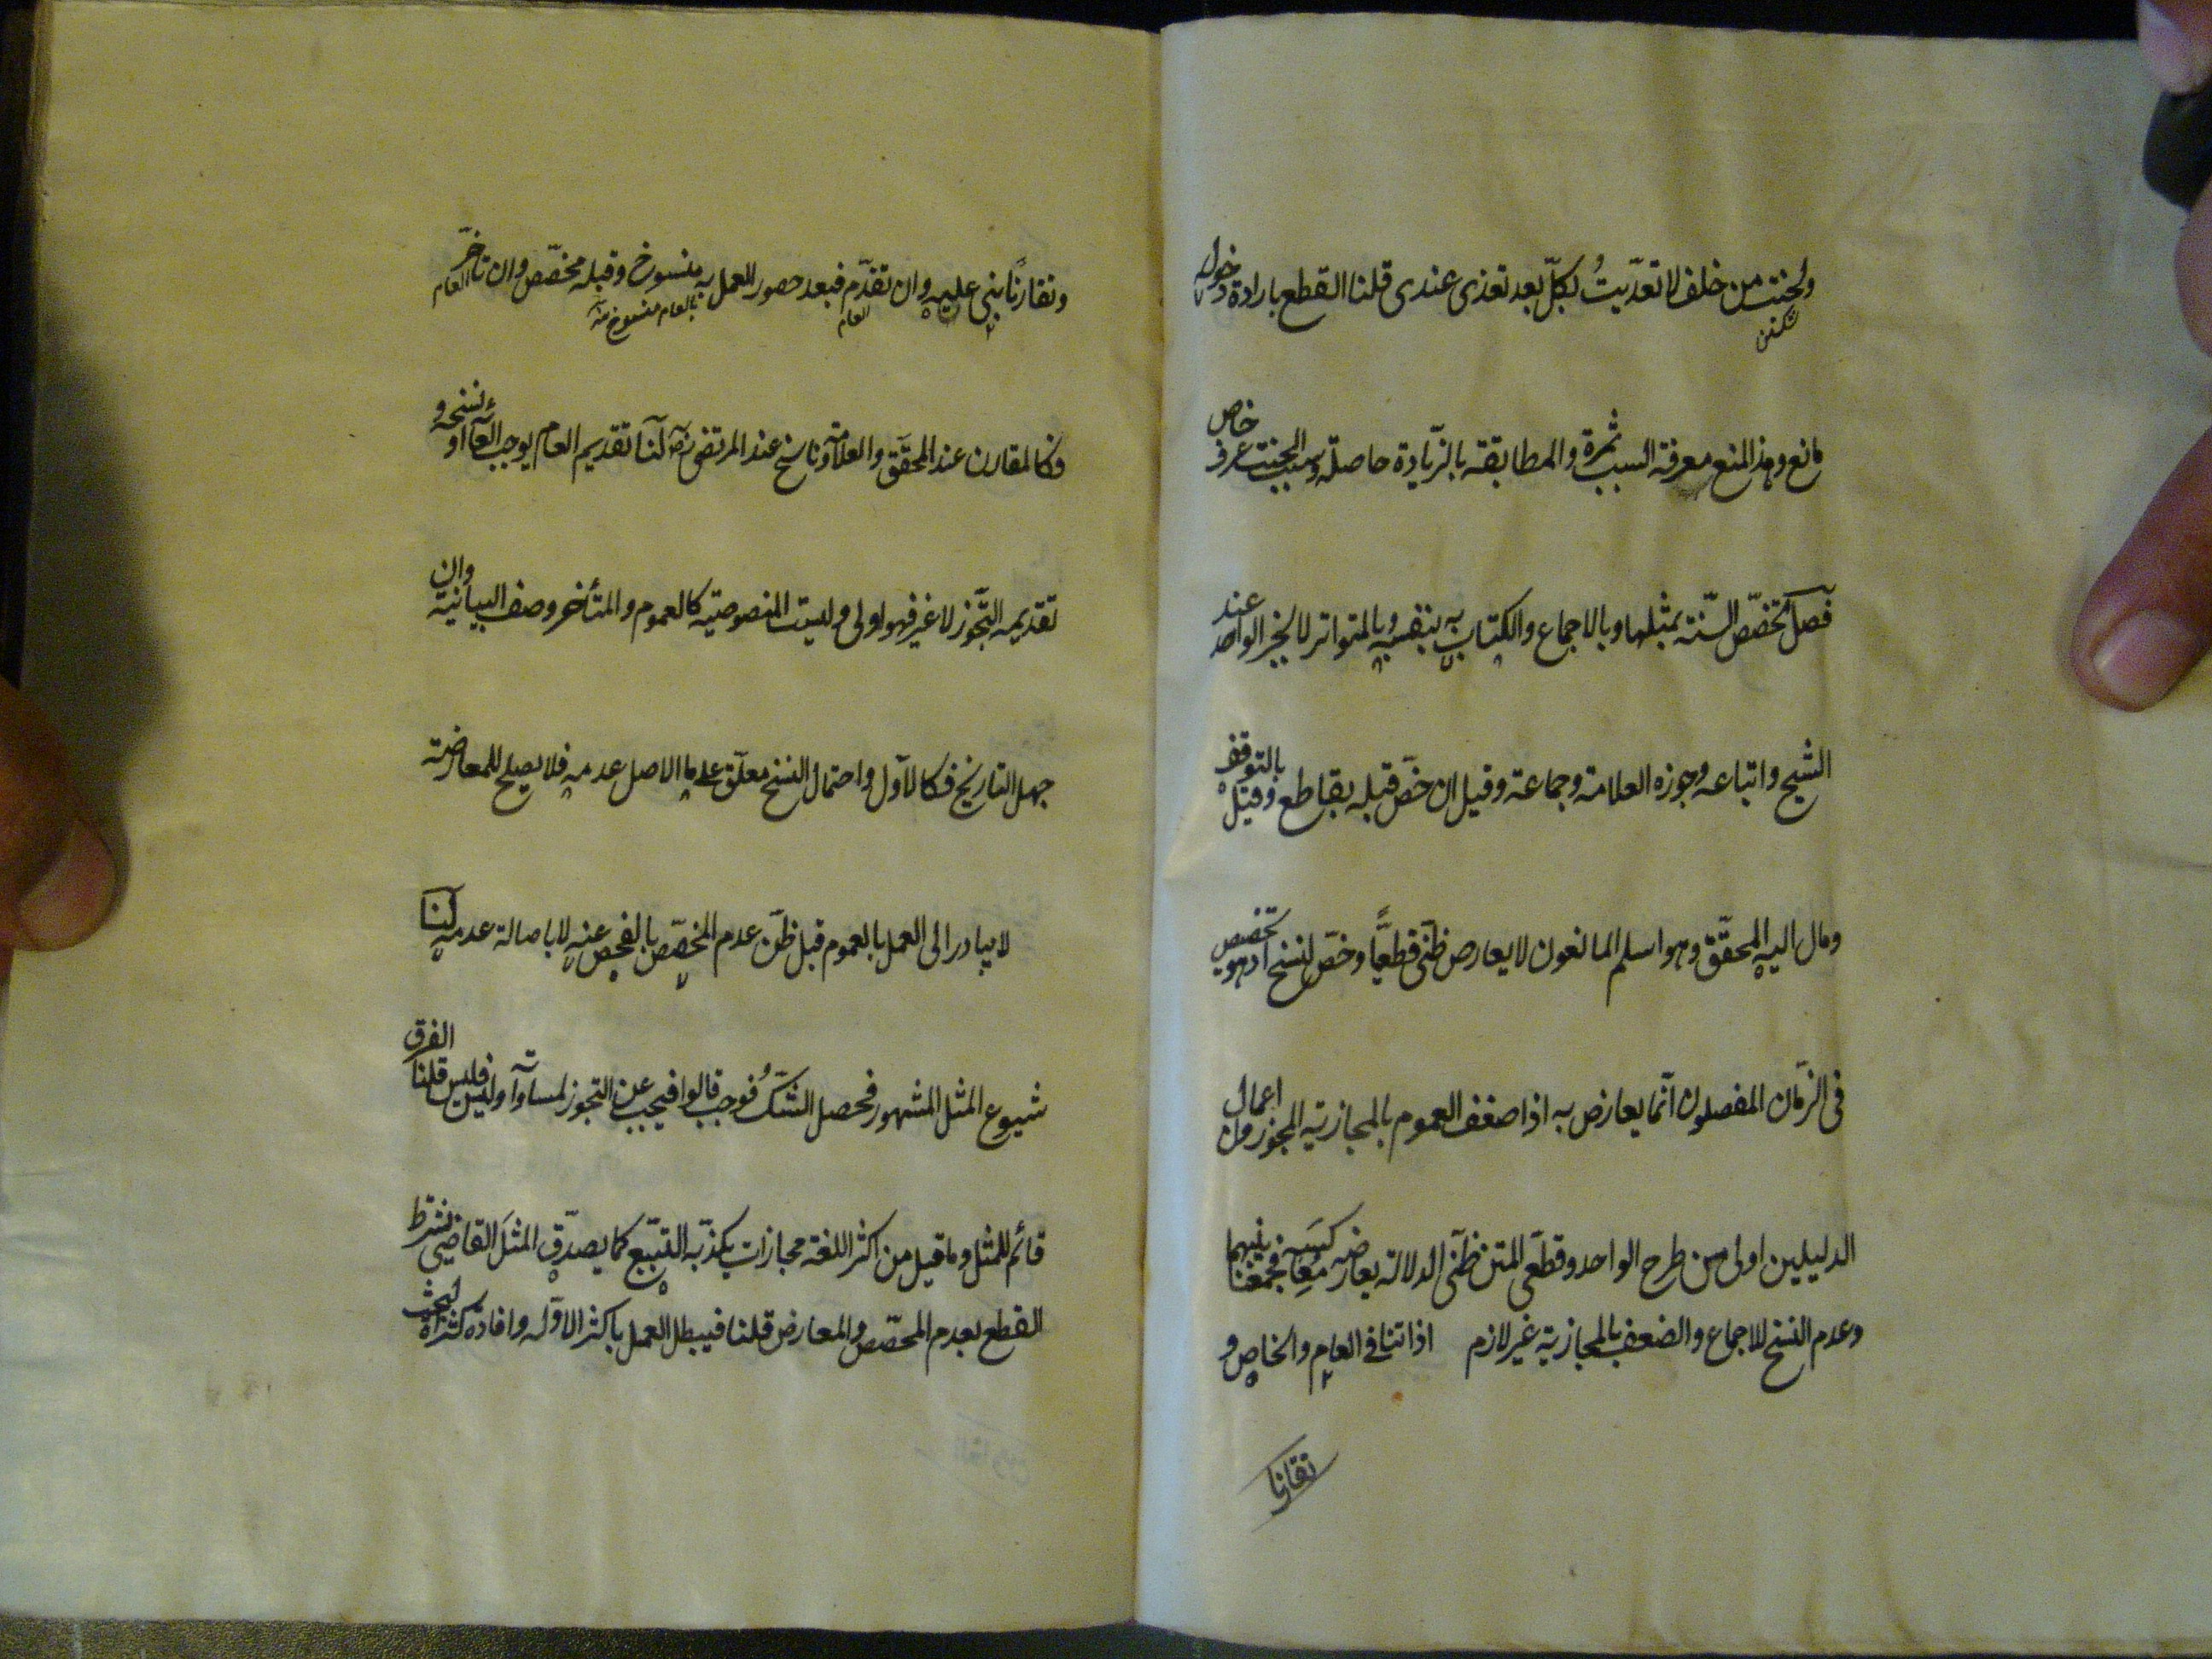 ولحنث من خلف لا تعدّيتُ لكلّ بعد تعذى عندى قلنا القطع بارادة دخوله
مانع وهذ المنع معرفة السبب ثمرة والمطابقة بالزّيادة حاصلة وسبب الحنث عرف خاص
فصل تخصّص السّنة بمثلها وبالاجماع والكتاب به بنفسه وبالمتواتر لا لخبر الواحد عند
الشيخ واتباعه وجوزه العلامة وجماعة وقيل ان خصّ قبله بقاطع وقيل بالتوقف
ومال اليه المحقّق وهو اسلم المانعون لا يعارض ظنّى قطعيًّا وخصّ لنسخ اذ هو تخصيص
فى الزّمان المفصلون انّما يعارض به اذا ضعف العموم بالمجازية المجوزون اعمال
الدليلين اولى من طرح الواحد وقطعى المتن ظنّى الدلالة يعارضه كسبه معا فجمعنا بينهما
وعدم النسخ للاجماع والضعف بالمجازية غير لازم اذا تنافى العام والخاص و
تقارنا
وتقارنا بنى عليه وان تقدّم فبعد حضور العمل به منسوخ وقبله مخصّص وان تاخّر
العام
بالعام منسوخ منه
العام
فكالمقارن عند المحقّق والعلامة وناسخ عند المرتضى رضه لنا تقديم العام يوجب الغاء او نسخه و
تقديمه التّجوز لا غير فهو اولى وليست المنصوصية كالعموم والمتأخر وصف البيانية وان
جهل التاريخ فكالاوّل واحتمال النسخ معلّق على ما الاصل عدمه فلا يصلح للمعارضة
لا يبادر الى العمل بالعموم قبل ظنّ عدم المخصّص بالفحص عنه لا باصالة عدمه لنا
شيوع المثل المشهور فحصل الشكّ فوجب قالوا فيجب عن التجوز لمساواته وليس فليس قلنا الفرق
قائم للمثل وما قيل من اكثر اللغة مجازات يكذّبه التتبّع كما يصدّق المثل القاضى نشرط
القطع بعدم المخصّص والمعارض قلنا فيبطل العمل باكثر الاوّلة وافادة كثرة البحث